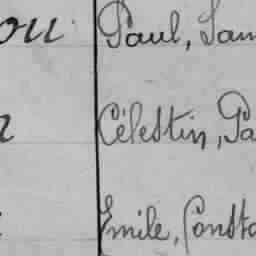 ou Paul, Sam
Célestin, Pa
Emile, Consta